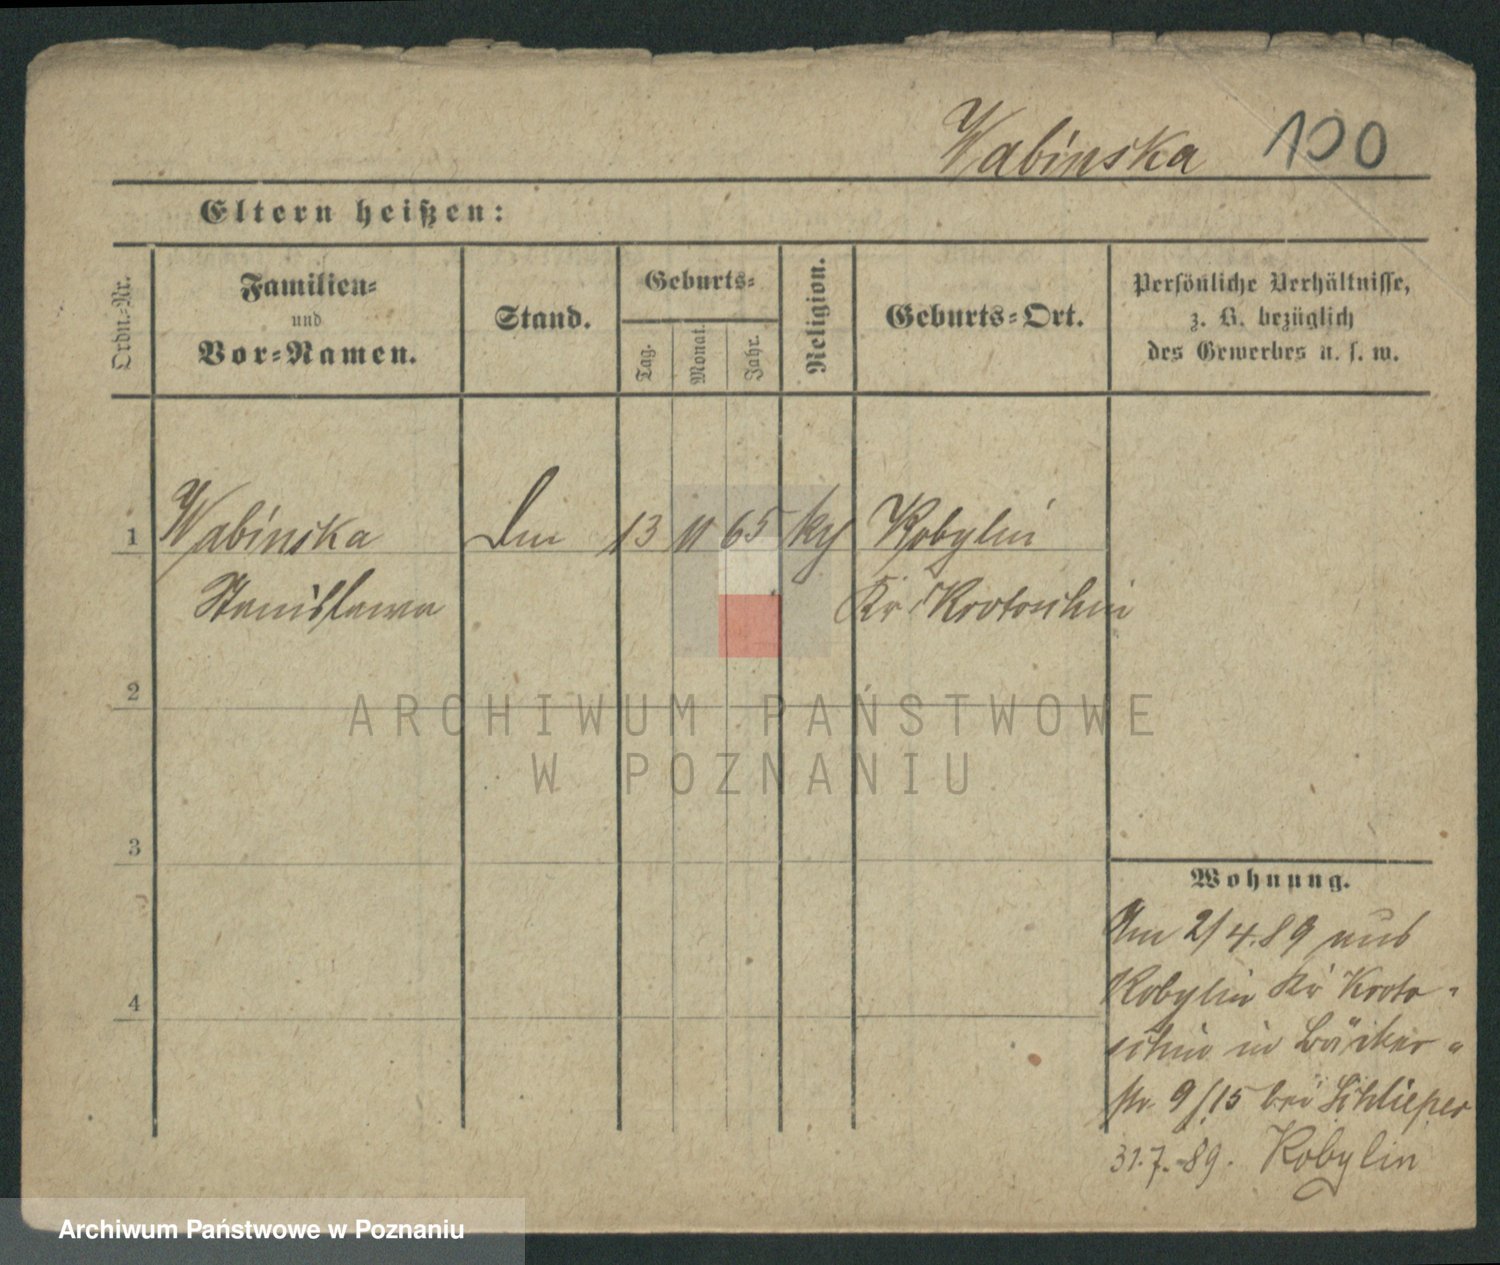 Wabinska 100
Eltern heißen:
Ordn.-Nr.
Familien-
und
Vor-Namen.
Stand.
Geburts-
Tag.
Monat.
Jahr.
Religion.
Geburts-Ort.
Persönliche Verhältnisse,
z. B. bezüglich
des Gewerbes u. s. w.
1 Wabinska 13 11 65 Kobylin
Stanislawa Kr Krotoschin
2
3
4
Wohnung.
Am 2/4.89 aus
Kobylin Kr Kroto-
schin in Bäcker-
str. 9/15 bei Schlieper
31.7.89. Kobylin
ARCHIWUM PAŃSTWOWE
W POZNANIU
Archiwum Państwowe w Poznaniu